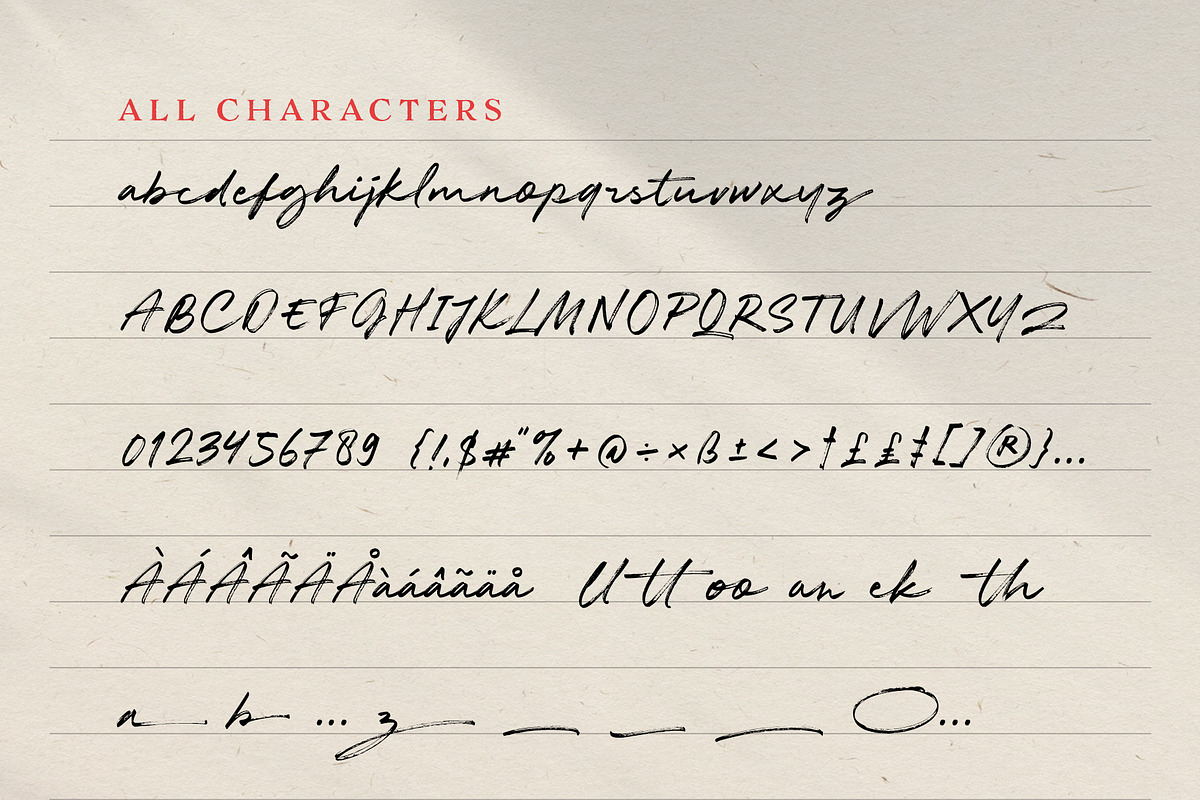 ALL CHARACTERS
abcdefghijklmnopqrstuvwxyz
ABCDEFGHIJKLMNOPQRSTUVWXYZ
0123456789 {!,$#"%+@÷×ß±<>†££‡[]®}...
ÀÁÂÃÄÅàáâãäå ll tt oo an ek th
a b ... z _ _ _ ...